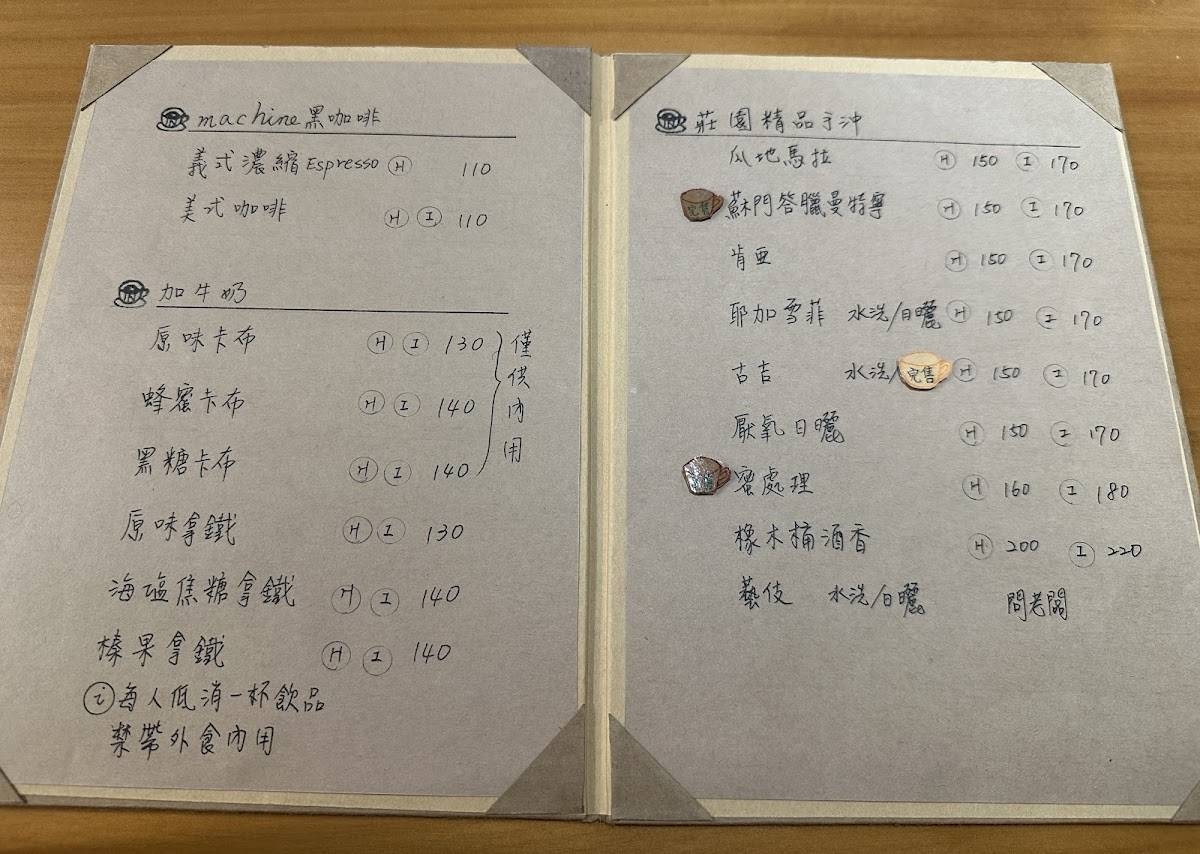 machine 黑咖啡
義式濃縮 Espresso Ⓗ 110
美式咖啡 Ⓗ Ⓘ 110
加牛奶
原味卡布 Ⓗ Ⓘ 130
蜂蜜卡布 Ⓗ Ⓘ 140
黑糖卡布 Ⓗ Ⓘ 140
僅供內用
原味拿鐵 Ⓗ Ⓘ 130
海塩焦糖拿鐵 Ⓗ Ⓘ 140
榛果拿鐵 Ⓗ Ⓘ 140
ⓘ每人低消一杯飲品
禁帶外食內用
莊園精品手沖
瓜地馬拉 Ⓗ 150 Ⓘ 170
完售 蘇門答臘曼特寧 Ⓗ 150 Ⓘ 170
肯亞 Ⓗ 150 Ⓘ 170
耶加雪菲 水洗/日曬 Ⓗ 150 Ⓘ 170
古吉 水洗/ 完售 Ⓗ 150 Ⓘ 170
厭氧日曬 Ⓗ 150 Ⓘ 170
蜜處理 Ⓗ 160 Ⓘ 180
橡木桶酒香 Ⓗ 200 Ⓘ 220
藝伎 水洗/日曬 問老闆